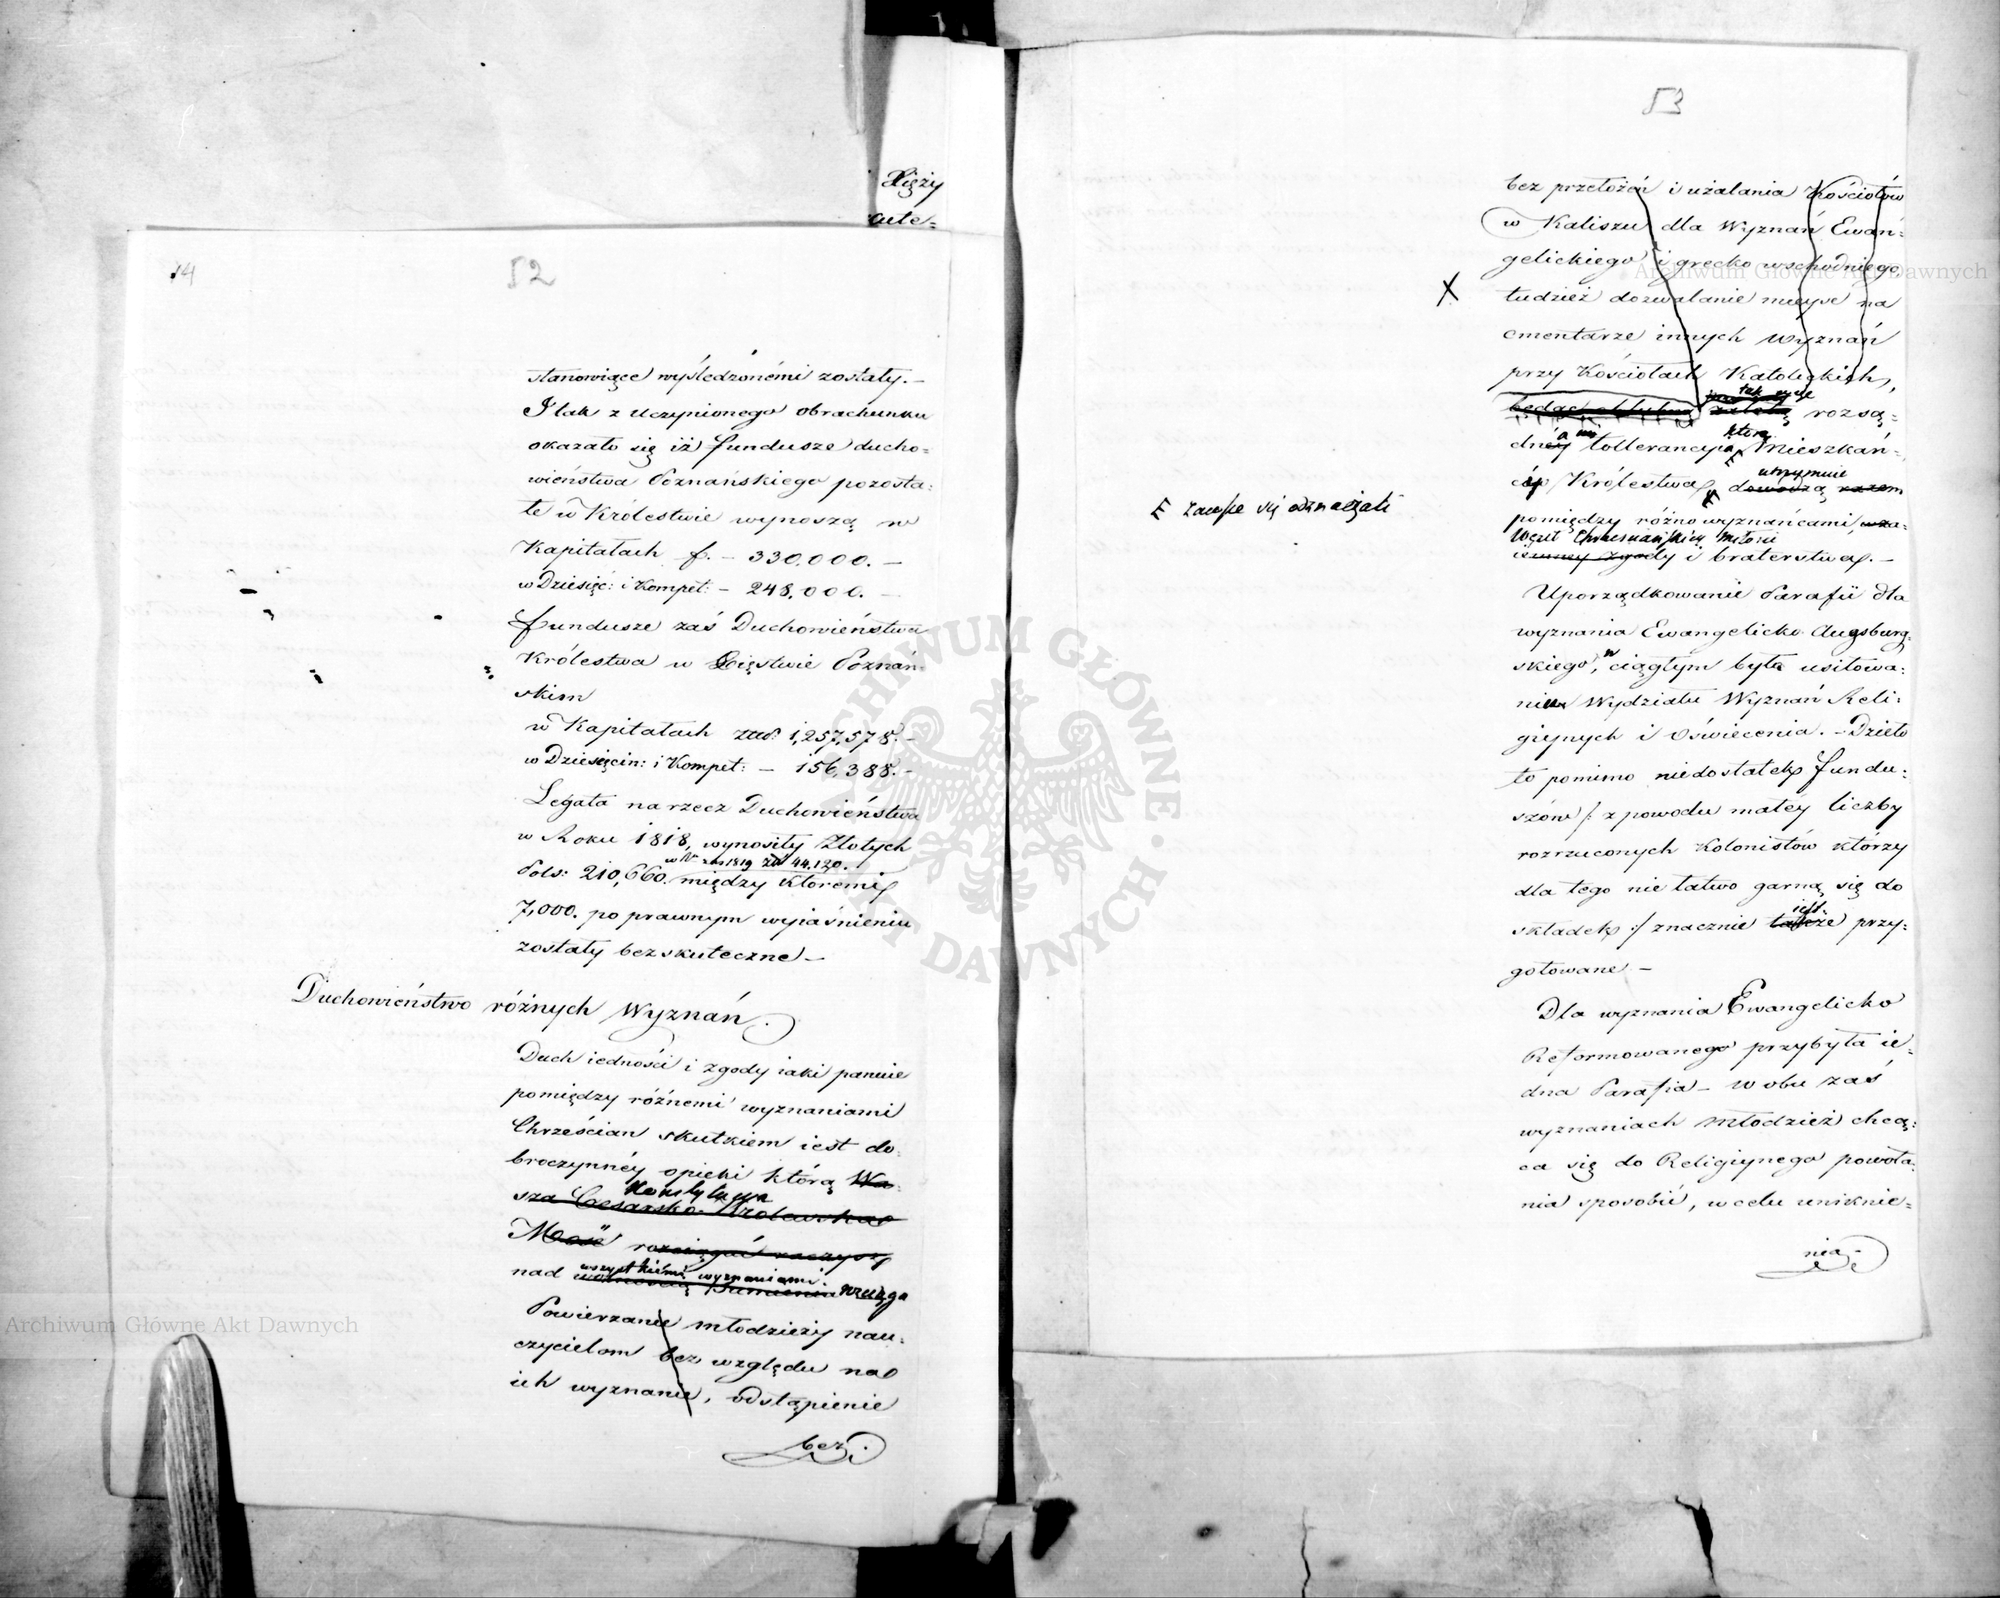 Xięży
aute=
14
52
stanowiące wyśledzonémi zostały. –
I tak z uczynionego obrachunku
okazało się iż fundusze ducho=
wieństwa Poznańskiego pozosta=
łe w Królestwie wynoszą w
Kapitałach f. – 330,000. –
w Dziesięc: i Kompet: – 248,000. –
fundusze zaś Duchowieństwa
Królestwa w Xięstwie Poznań=
skim
w Kapitałach 1,257,578. –
w Dziesięcin: i Kompet: – 156,388. –
Legata na rzecz Duchowieństwa
w Roku 1818, wynosiły Złotych
w Ru zaś 1819 Zł 44.120.
Pols: 210,660. między ktoremi
7,000. po prawnym wyiaśnieniu
zostały bezskuteczne –
Duchowieństwo różnych Wyznań.
Duch iedności i zgody iaki panuie
pomiędzy różnemi wyznaniami
Chrześcian skutkiem iest do=
broczynnéy opieki którą Wa=
Konstytucya
sza Cesarsko Królewska
Mość rozciągać raczysz
wszystkiémi wyznaniami
nad wolnością sumienia rozciąga
Powierzanie młodzieży nau=
czycielom bez względu na
ich wyznanie, odstąpienie
bez
53
bez przełożéń i użalania Kościołów
w Kaliszu dla Wyznań Ewan=
gelickiego i grecko wschodniego
X tudzież dozwalanie mieysc na
cmentarze innych Wyznań
przy Kościołach Katolickich,
będąc chlubną zaletą rozsą=
którą
dnéy tollerancyi Mieszkań=
utrzymuie
ców Królestwa, dowodzą razem
E zawsze się odznaczali
pomiędzy różno wyznańcami, wza=
węzeł Chrześciańskiey miłości
iemney zgody i braterstwa. –
Uporządkowanie Parafii dla
wyznania Ewangelicko Augsburg=
skiego, ciągłym było usiłowa=
niem Wydziału Wyznań Reli=
giynych i Oświecenia. – Dzieło
to pomimo niedostatek fundu=
szów /: z powodu małéy liczby
rozrzuconych Kolonistów którzy
dla tego nie łatwo garną się do
iest
składek :/ znacznie także przy=
gotowane –
Dla wyznania Ewangelicko
Reformowanego przybyła ie=
dna Parafia – w obu zaś
wyznaniach młodzież chcą=
ca się do Religiynego powoła=
nia sposobić, w celu uniknie=
nia
ARCHIWUM GŁÓWNE AKT DAWNYCH
Archiwum Główne Akt Dawnych
Archiwum Główne Akt Dawnych